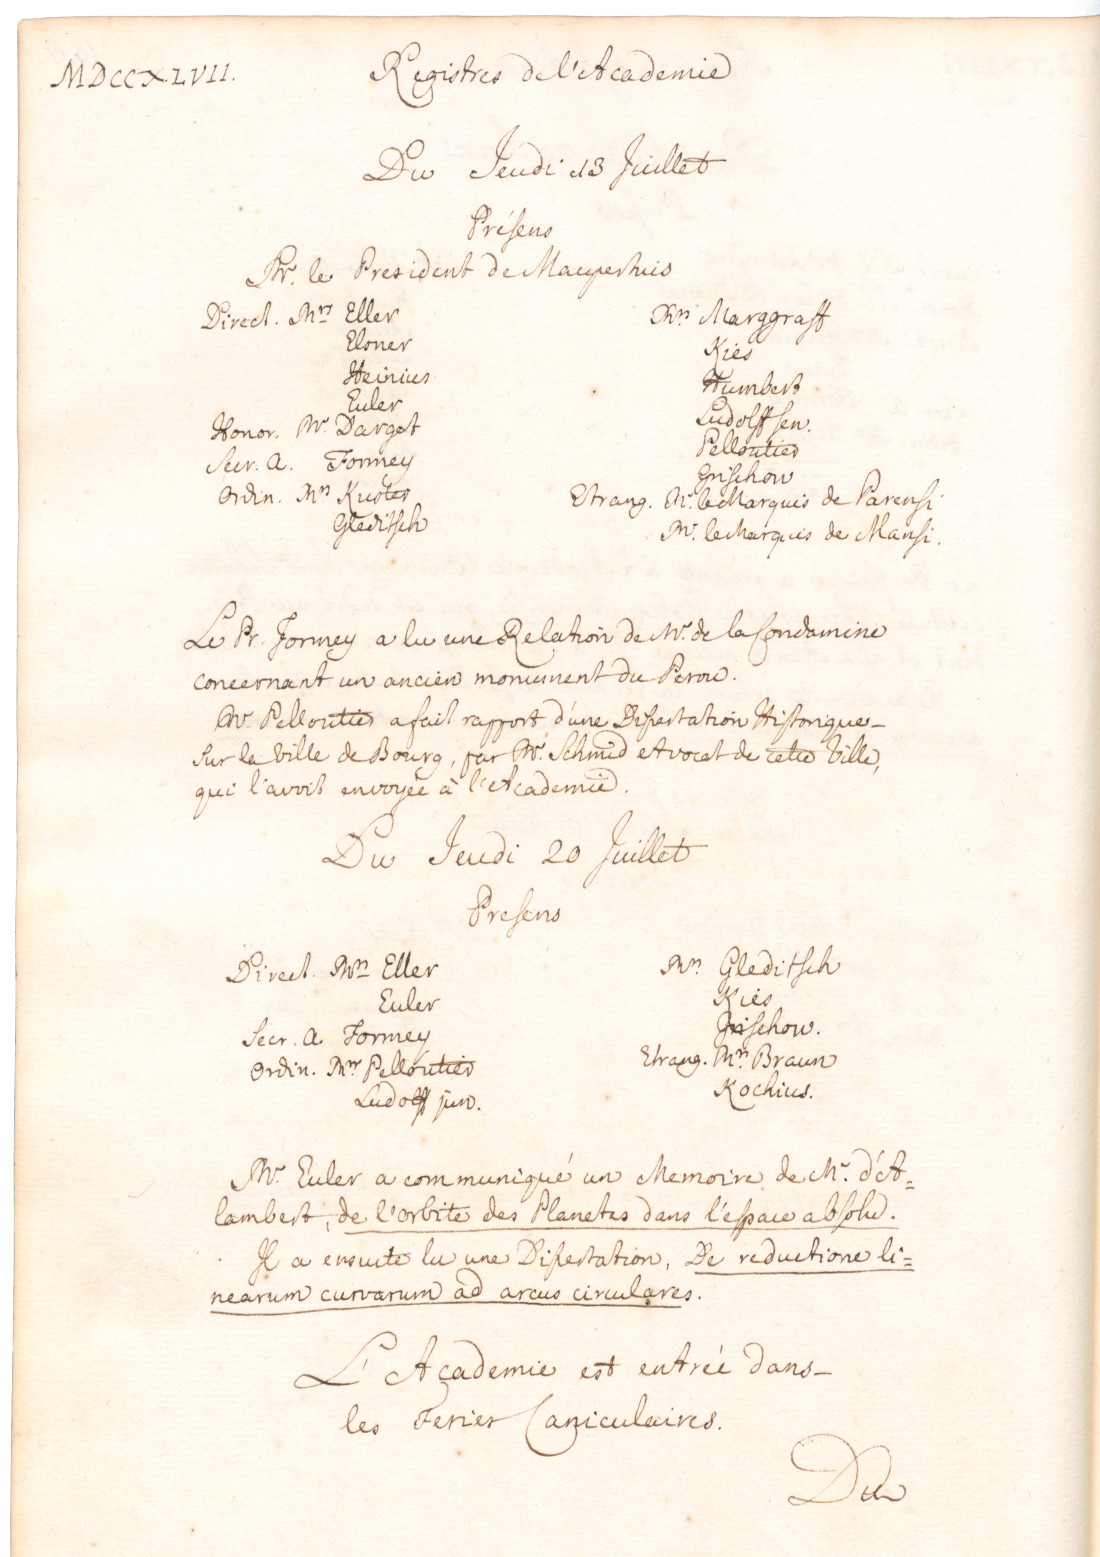 MDCCXLVII.
Registres de l'Academie
Du Jeudi 13 Juillet
Présens
Mr. le President de Maupertuis
Direct. Mrs Eller
Elsner
Heinius
Euler
Honor. Mr. Darget
Secr. A. Formey
Ordin. Mrs Kuster
Gleditsch
Mrs Marggraff
Kies
Humbert
Ludolff sen.
Pelloutier
Grischow
Etrang. Mr. le Marquis de Parensi
Mr. le Marquis de Mansi.
Le Pr. Formey a lu une Relation de Mr. de la Condamine
concernant un ancien monument du Perou.
Mr. Pelloutier a fait rapport d'une Dissertation Historique
sur la Ville de Bourg, par Mr. Schmid Avocat de cette Ville,
qui l'avoit envoyée à l'Academie.
Du Jeudi 20 Juillet
Presens
Direct. Mrs Eller
Euler
Secr. A Formey
Ordin. Mrs Pelloutier
Ludolff jun.
Mrs Gleditsch
Kies
Grischow.
Etrang. Mrs Braun
Kochius.
Mr. Euler a communiqué un Memoire de Mr. d'A=
lambert, de l'orbite des Planetes dans l'espace absolu.
Il a ensuite lu une Dissertation, De reductione li=
nearum curvarum ad arcus circulares.
L'Academie est entrée dans
les Feries Caniculaires.
Du